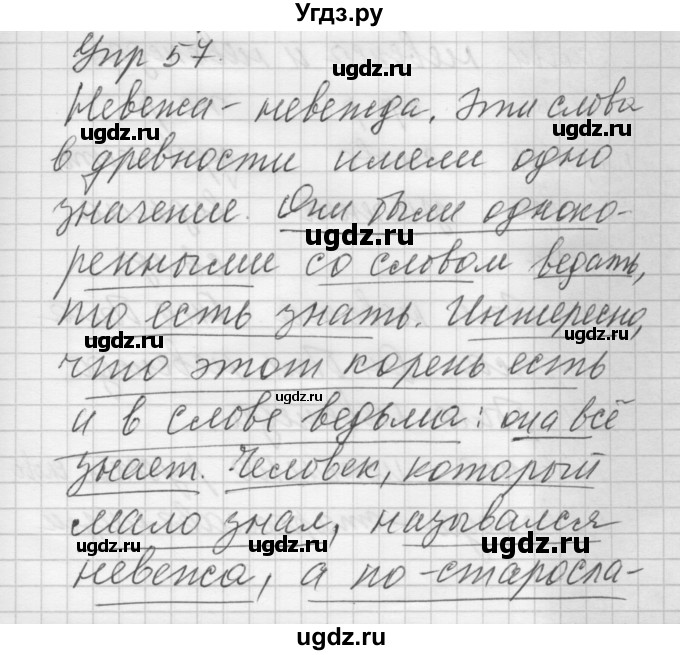 Угдз.ру
Упр 57.
Невежа - невежда. Эти слова
в древности имели одно
значение. Они были одноко-
ренными со словом ведать,
то есть знать. Интересно,
что этот корень есть
и в слове ведьма: она всё
знает. Человек, который
мало знал, назывался
невежа, а по-старосла-
ugdz.ru
ugdz.ru
ugdz.ru
ugdz.ru
ugdz.ru
ugdz.ru
ugdz.ru
ugdz.ru
ugdz.ru
ugdz.ru
ugdz.ru
ugdz.ru
ugdz.ru
ugdz.ru